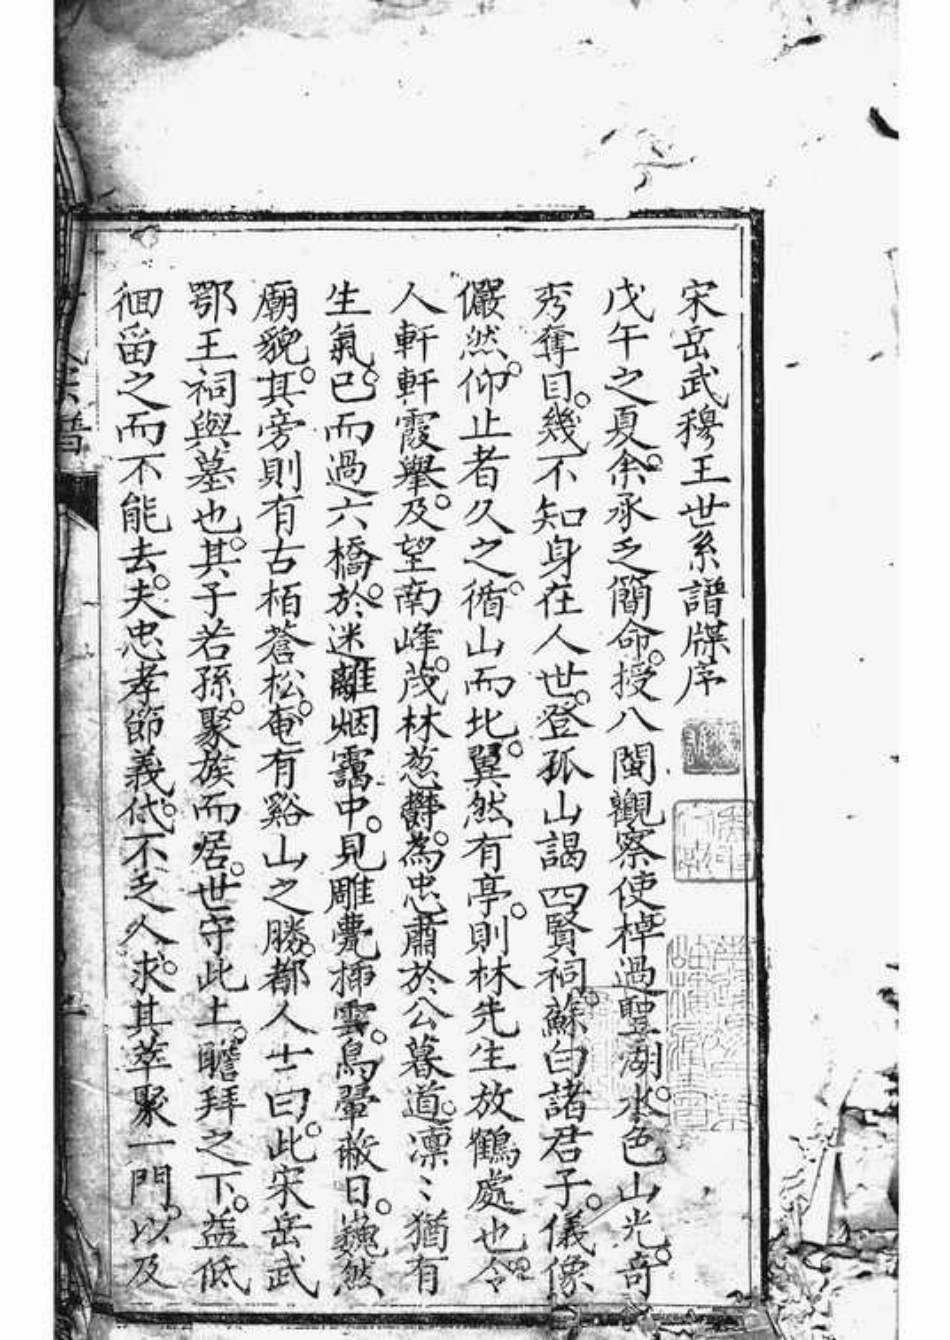 宋岳武穆王世系譜牒序
戊午之夏余承乏簡命授八閩觀察使棹過聖湖水色山光奇
秀奪目幾不知身在人世登孤山謁四賢祠蘇白諸君子儀像
儼然仰止者久之循山而北翼然有亭則林先生放鶴處也令
人軒軒霞舉及望南峰茂林葱鬱為忠肅於公墓道凛〻猶有
生氣已而過六橋於迷離烟靄中見雕甍插雲鳥翬蔽日巍然
廟貌其旁則有古栢蒼松奄有谿山之勝都人士曰此宋岳武
鄂王祠與墓也其子若孫聚族而居世守此土瞻拜之下益低
徊畱之而不能去夫忠孝節義代不乏人求其萃聚一門以及